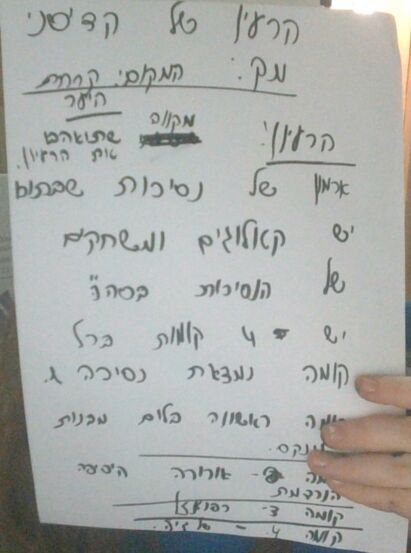 הרעיון של הדיסני
מק: המקום: קרחת
היער
הרעיון: מקווה שתאהבו
את הרעיון.
ארמון של נסיכות שבתוכו
יש קטלוגים ומשחקים
של הנסיכות בסה"כ
יש 4 קומות בכל
קומה נמצאת נסיכה 1.
קומה ראשונה בלים מבנות
אורורה היפיפיה
הנרדמת
קומה 3- רפונזל
קומה 4. -